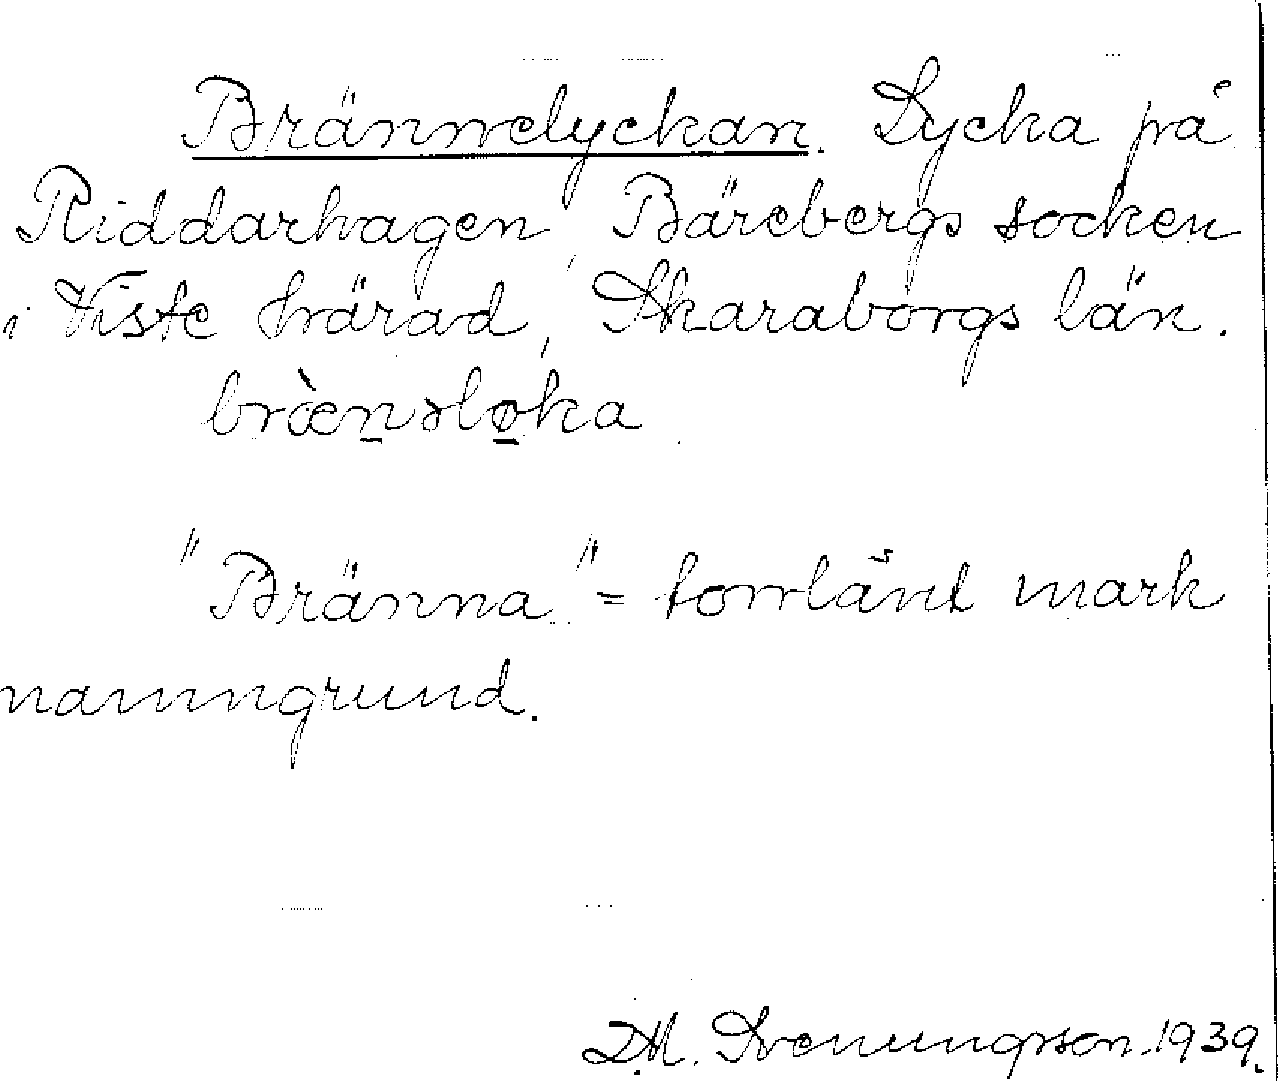 Brännelyckan. Lycka på
Riddarhagen, Bärebergs socken
i Viste härad, Skaraborgs län.
bræ̀n̲əlø̲ka
"Bränna" = torrlänt mark
namngrund.
D.M. Svenungsson. 1939.